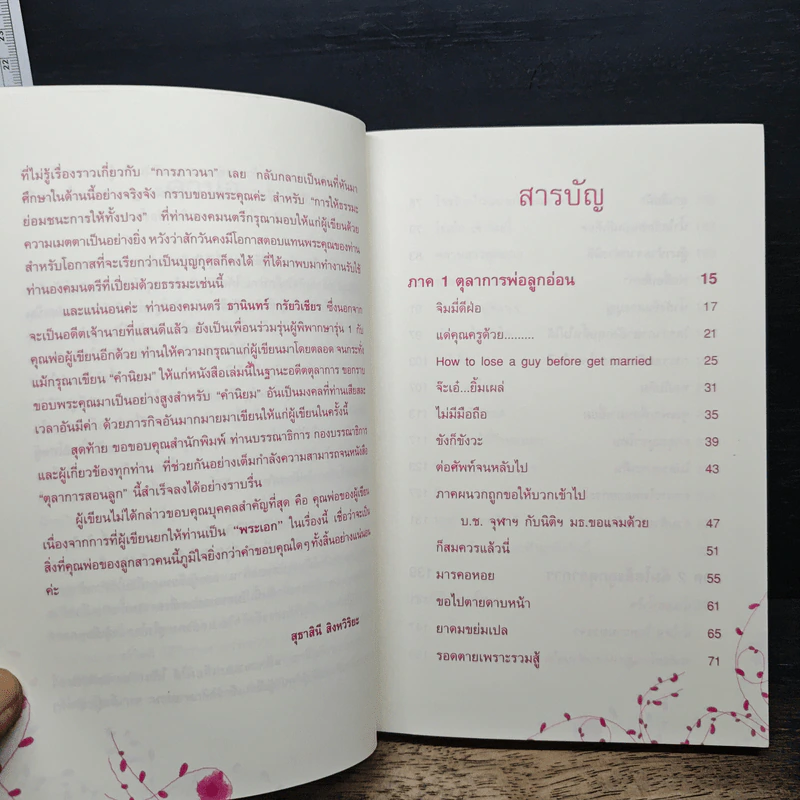 ที่ไม่รู้เรื่องราวเกี่ยวกับ “การภาวนา” เลย กลับกลายเป็นคนที่หันมา
ศึกษาในด้านนี้อย่างจริงจัง กราบขอบพระคุณค่ะ สำหรับ “การให้ธรรมะ
ย่อมชนะการให้ทั้งปวง” ที่ท่านองคมนตรีกรุณามอบให้แก่ผู้เขียนด้วย
ความเมตตาเป็นอย่างยิ่ง หวังว่าสักวันคงมีโอกาสตอบแทนพระคุณของท่าน
สำหรับโอกาสที่จะเรียกว่าเป็นบุญกุศลก็คงได้ ที่ได้มาพบมาทำงานรับใช้
ท่านองคมนตรีที่เปี่ยมด้วยธรรมะเช่นนี้
และแน่นอนค่ะ ท่านองคมนตรี ธานินทร์ กรัยวิเชียร ซึ่งนอกจาก
จะเป็นอดีตเจ้านายที่แสนดีแล้ว ยังเป็นเพื่อนร่วมรุ่นผู้พิพากษารุ่น 1 กับ
คุณพ่อผู้เขียนอีกด้วย ท่านให้ความกรุณาแก่ผู้เขียนมาโดยตลอด จนกระทั่ง
แม้กรุณาเขียน “คำนิยม” ให้แก่หนังสือเล่มนี้ในฐานะอดีตตุลาการ ขอกราบ
ขอบพระคุณมาเป็นอย่างสูงสำหรับ “คำนิยม” อันเป็นมงคลที่ท่านเสียสละ
เวลาอันมีค่า ด้วยภารกิจอันมากมายมาเขียนให้แก่ผู้เขียนในครั้งนี้
สุดท้าย ขอขอบคุณสำนักพิมพ์ ท่านบรรณาธิการ กองบรรณาธิการ
และผู้เกี่ยวข้องทุกท่าน ที่ช่วยกันอย่างเต็มกำลังความสามารถจนหนังสือ
“ตุลาการสอนลูก” นี้สำเร็จลงได้อย่างราบรื่น
ผู้เขียนไม่ได้กล่าวขอบคุณบุคคลสำคัญที่สุด คือ คุณพ่อของผู้เขียน
เนื่องจากการที่ผู้เขียนยกให้ท่านเป็น “พระเอก” ในเรื่องนี้ เชื่อว่าจะเป็น
สิ่งที่คุณพ่อของลูกสาวคนนี้ภูมิใจยิ่งกว่าคำขอบคุณใดๆ ทั้งสิ้นอย่างแน่นอน
ค่ะ
สุธาสินี สิงหวิริยะ
สารบัญ
ภาค 1 ตุลาการพ่อลูกอ่อน 15
จิมมี่ดีฝ่อ 17
แด่คุณครูด้วย......... 21
How to lose a guy before get married 25
จ๊ะเอ๋...ยิ้มเผล่ 31
ไม่มีมือถือ 35
ขังก็ขังวะ 39
ต่อศัพท์จนหลับไป 43
ภาคผนวกถูกขอให้บวกเข้าไป
บ.ช. จุฬาฯ กับนิติฯ มธ.ขอแจมด้วย 47
ก็สมควรแล้วนี่ 51
มารคอหอย 55
ขอไปตายดาบหน้า 61
ยาดมขย่มเปล 65
รอดตายเพราะรวมสู้ 71